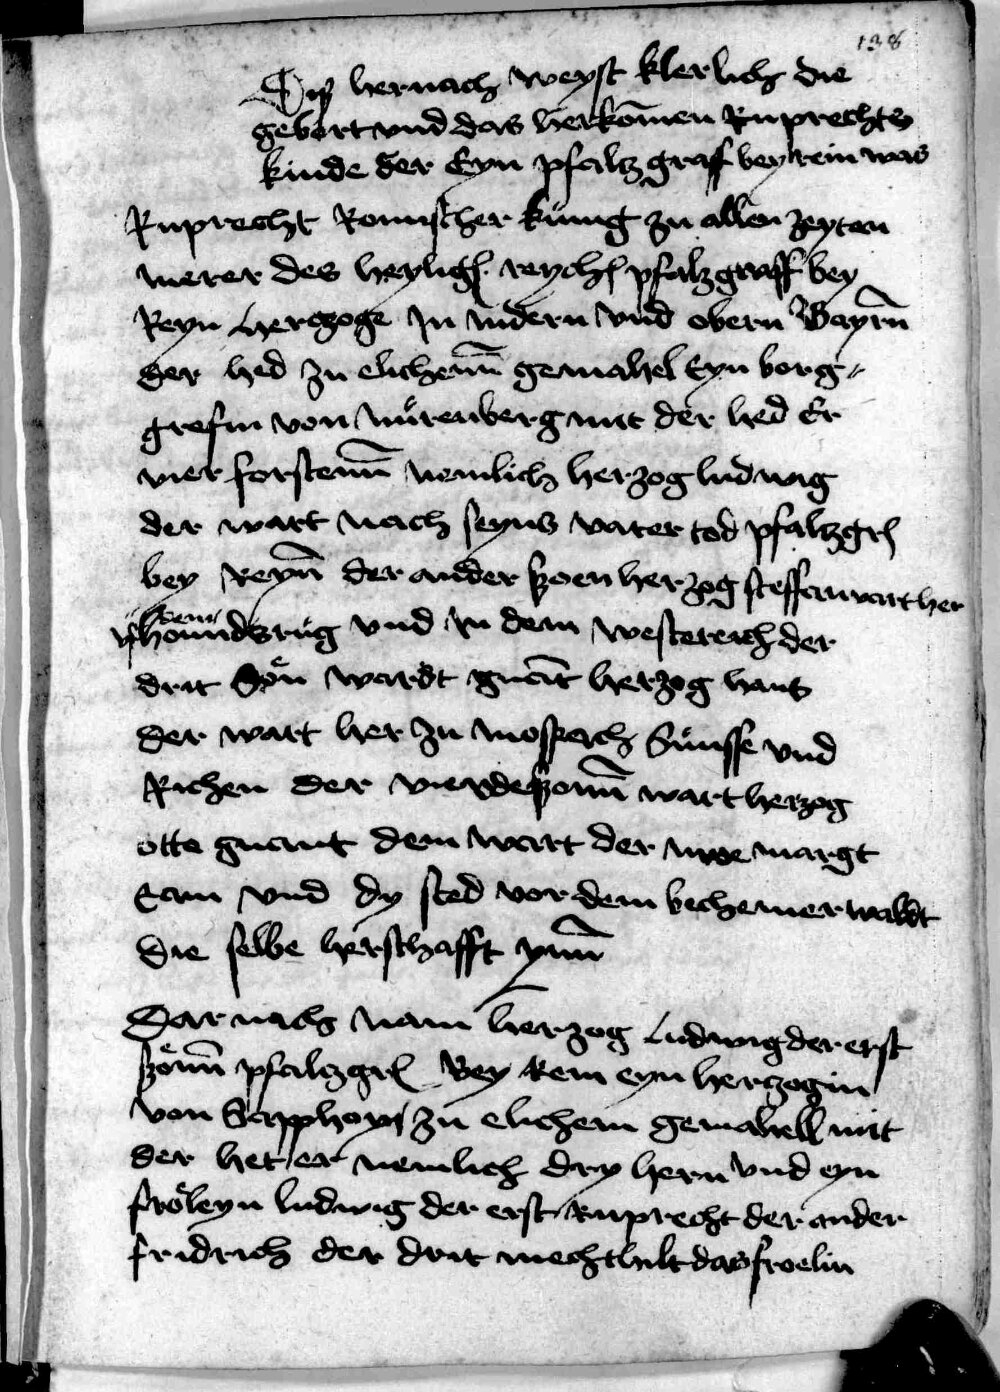 138
Diß hernach weyst klerlich die
gebort vnd das herkōmen Ruprechts
kinde der Eyn pfaltzgraf bey rein was
Ruprecht Romischer künig zu allen zeyten
merer des heyligē reychs pfaltzgraff bey
Reyn herczoge In nidern vnd obern Bayrn̄
der hed zu elichenn̄ gemahel Eyn borg-
grefin von nürenberg mit der hed Er
vier forstenn̄ nemlich herzog ludwig
der wart nach seyns vater tod pfaltzgrᷓ
bey Reyn̄ der ander szoen herzog steffan wart her
vf dem
houndsrüg vnd In dem westereich der
drit Sön wardt gnāt herzog hans
der wart her zu mosspach Sünsse vnd
Richen der vierde szonn̄ wart herzog
otto gnant dem wart der nwe margt
Cam vnd dy sted vor dem bechemer waldt
die selbe herschafft ynn̄
Dar nach nam herzog Ludwig der erst
szönn̄ pfaltzgrᷓ Bey Rein eyn herczogin
von Sapphoy zu elichem gemahell mit
der het er nemlich dry hern vnd eyn
fröleyn ludwig der erst Ruprecht der ander
fridrich der drit mechthilt das froelin